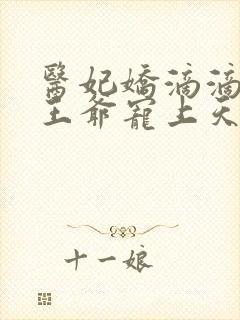 醫妃嬌滴滴
王爺寵上天
十一娘